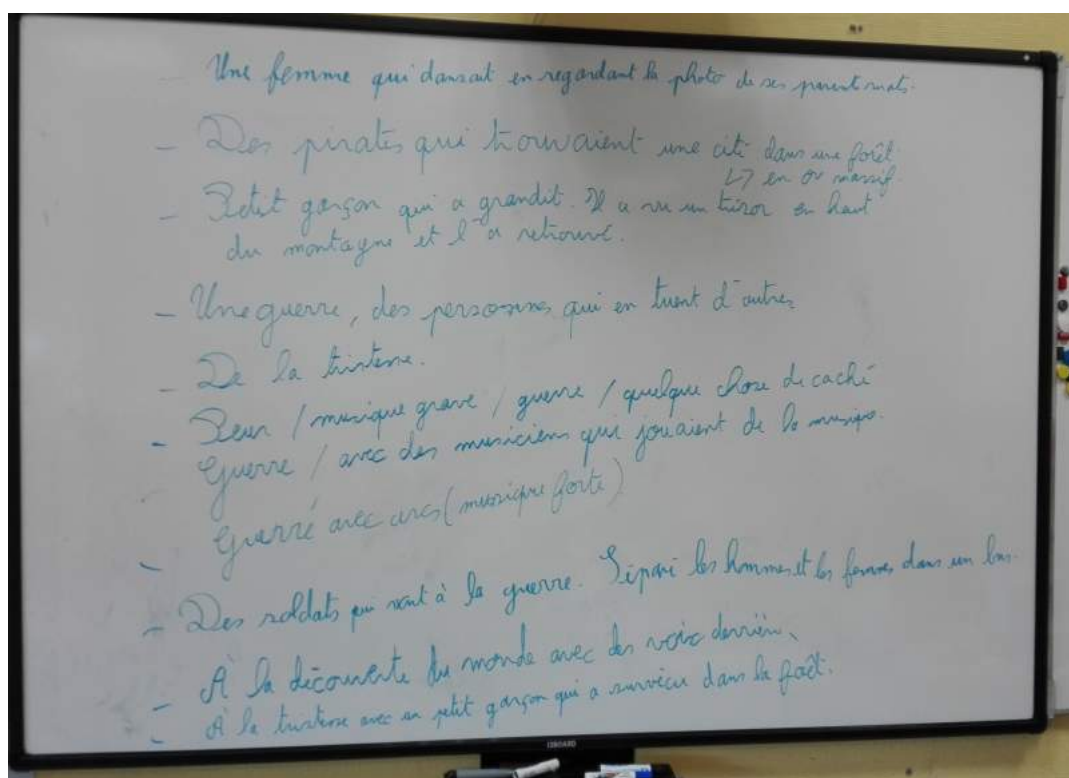 – Une femme qui dansait en regardant la photo de ses parent morts.
– Des pirates qui trouvaient une cité dans une forêt
↳ en or massif.
– Petit garçon qui a grandit. Il a vu un trésor en haut
du montagne et l'a retrouvé.
– Une guerre, des personnes qui en tuent d'autres
– De la tristesse.
– Peur / musique grave / guerre / quelque chose de caché
- Guerre / avec des musiciens qui jouaient de la musique.
– Guerre avec arcs (musique forte)
– Des soldats qui vont à la guerre. Séparé les hommes et les femmes dans un bus.
– À la découverte du monde avec des voix derrière.
– À la tristesse avec un petit garçon qui a survécu dans la forêt.